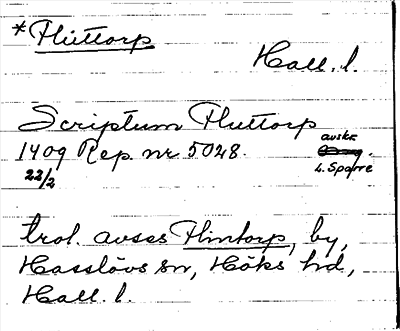 *Fluttorp
Hall. l.
Scriptum Fluttorp
1409 Rep. nr 5048. avskr.
22/2 L. Sparre
trol. avses Flintorp, by,
Hasslövs sn, Höks hd,
Hall. l.